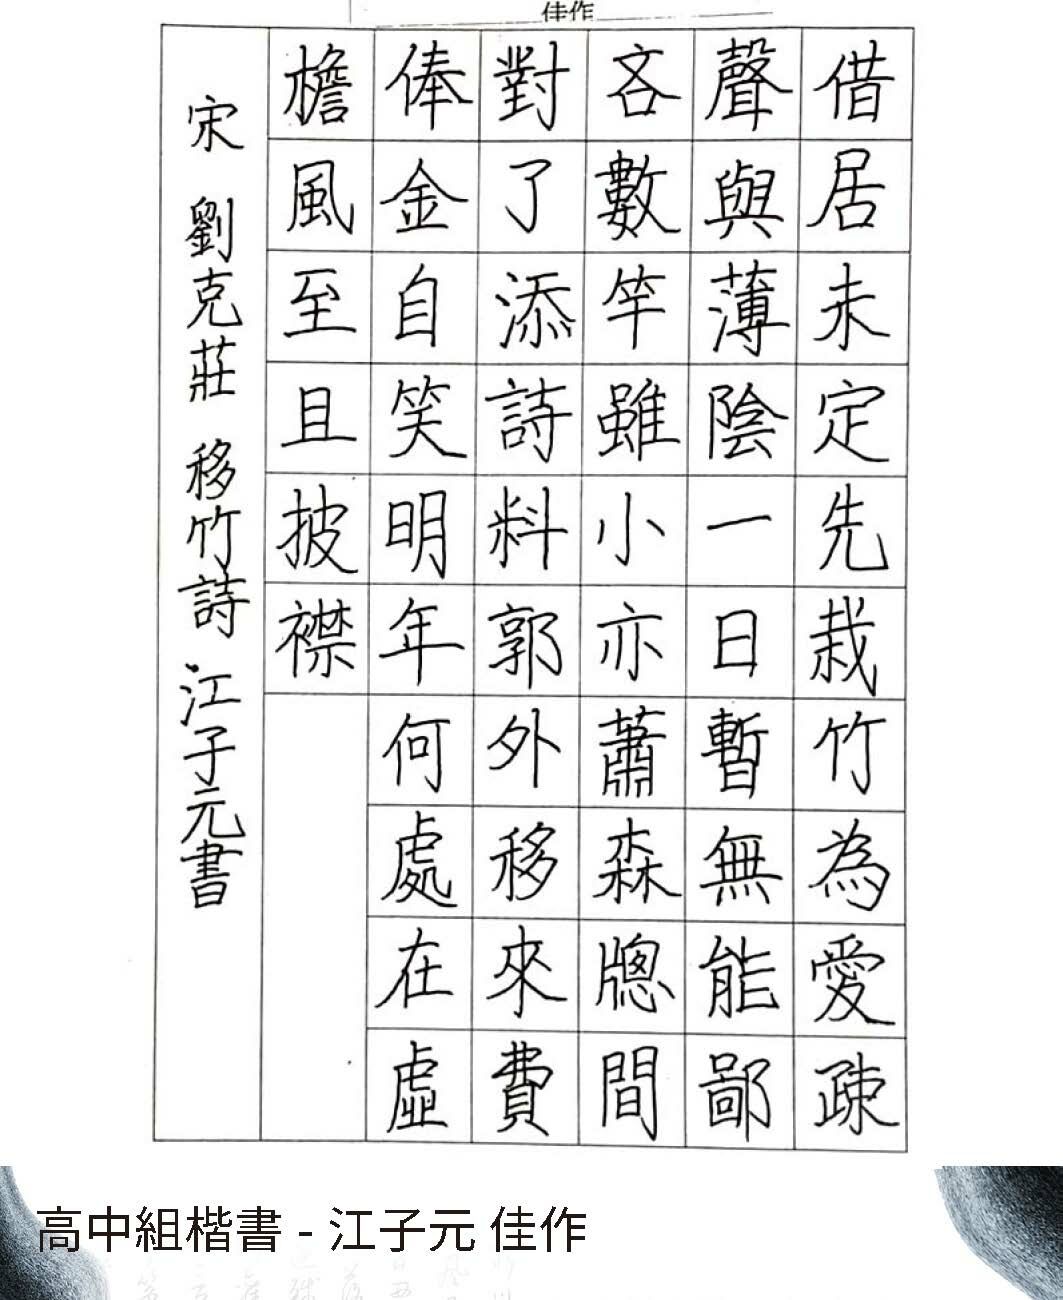 佳作
借居未定先栽竹為愛疎
聲與薄陰一日暫無能鄙
吝數竿雖小亦蕭森牕間
對了添詩料郭外移來費
俸金自笑明年何處在虛
檐風至且披襟
宋 劉克莊 移竹詩 江子元書
高中組楷書 - 江子元 佳作